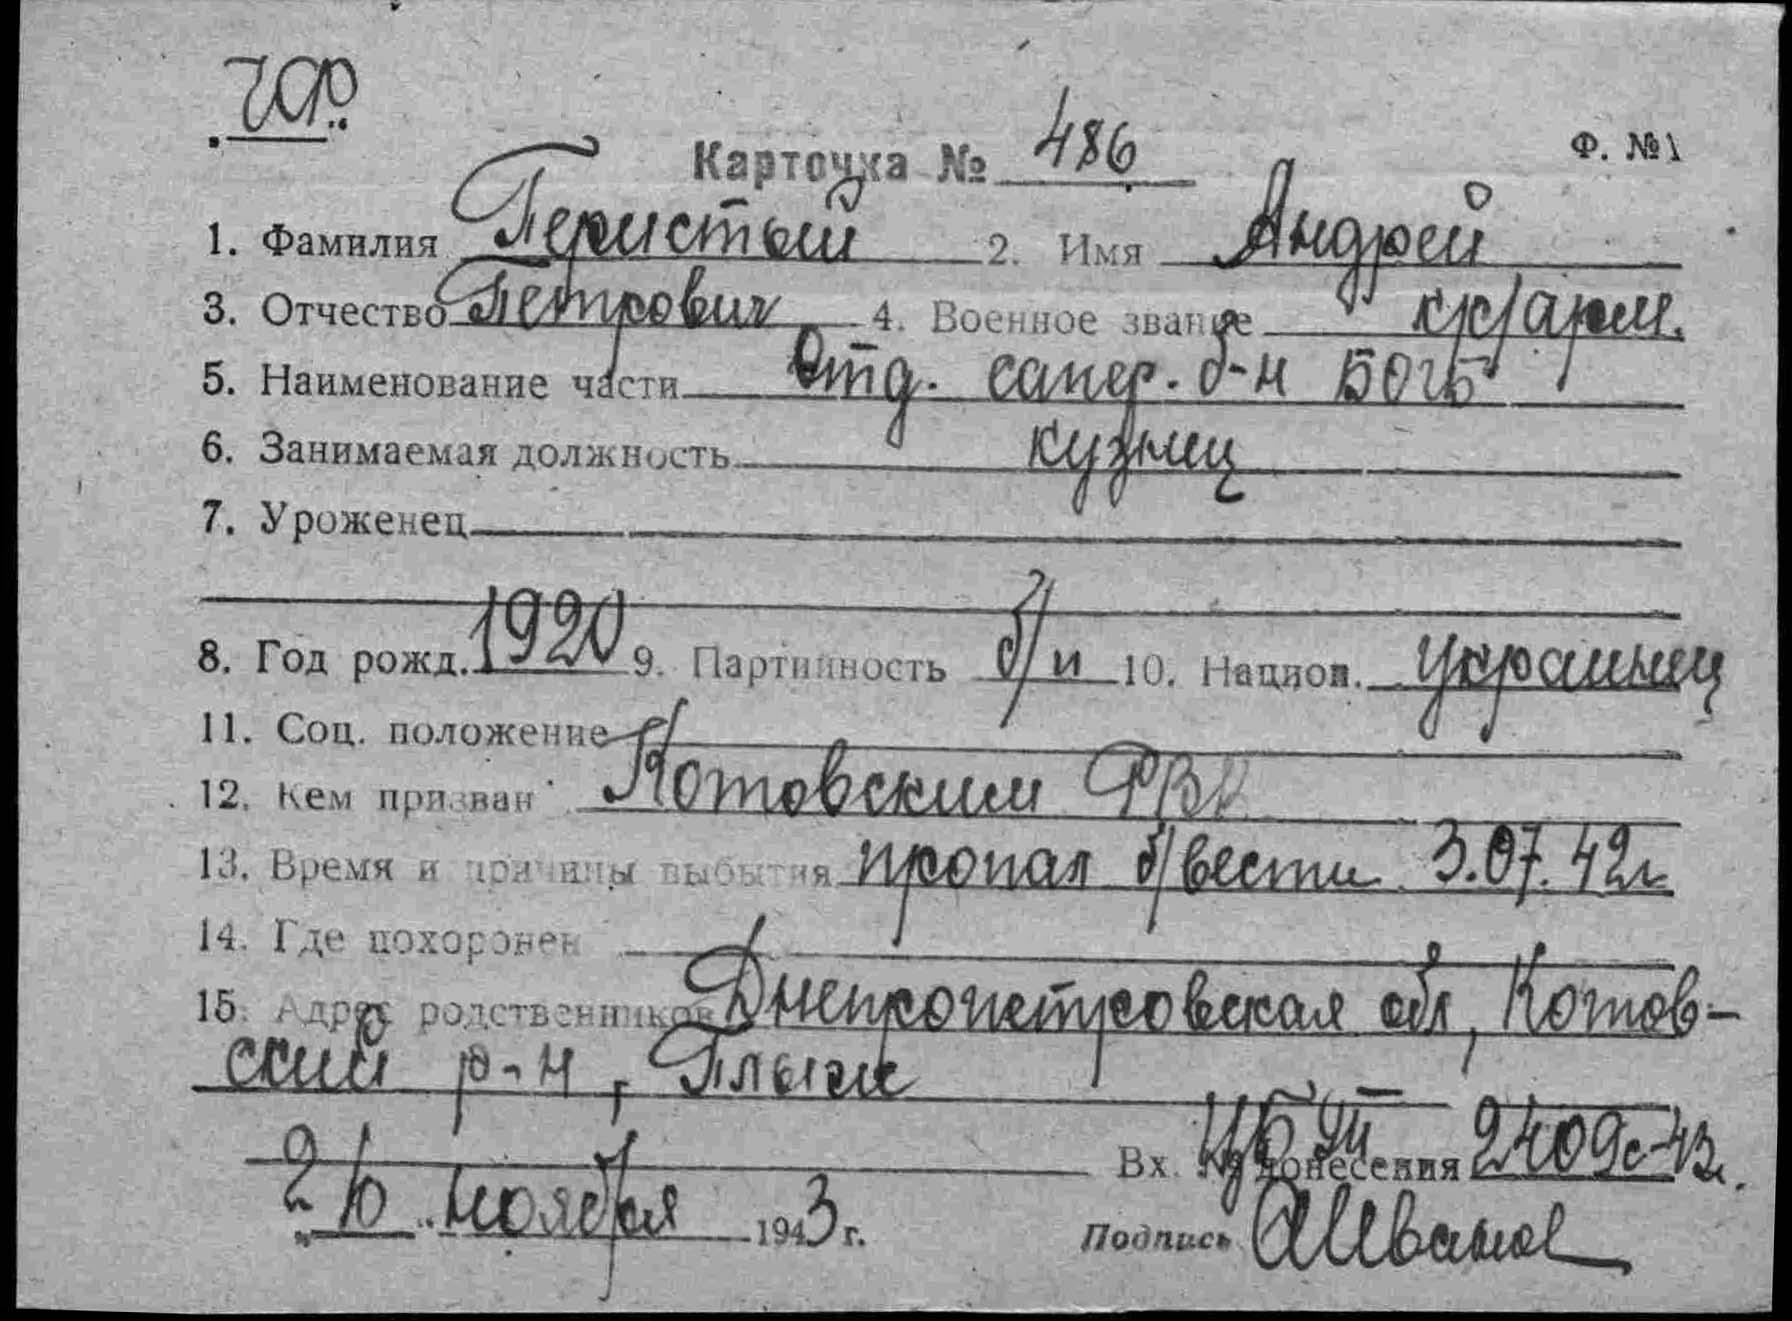 Карточка № 486 Ф. №1
1. Фамилия Перистый 2. Имя Андрей
3. Отчество Петрович 4. Военное звание кр/арм.
5. Наименование части Отд. сапер. б-н
6. Занимаемая должность кузнец
7. Уроженец
8. Год рожд. 1920 9. Партийность б/п 10. Национ. украинец
11. Соц. положение
12. Кем призван Котовским РВК
13. Время и причины выбытия пропал б/вести 3.07.42г
14. Где похоронен
15. Адрес родственников Днепропетровская обл, Котов-
ский р-н,
Вх. № донесения 2409с-43г.
ноября 1943 г. Подпись АИванов